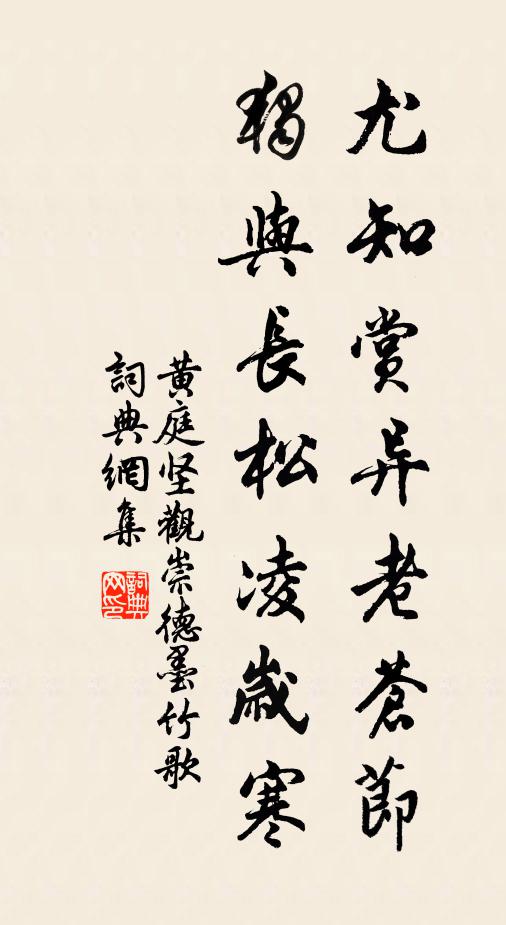 尤知赏异老蒼節
獨與長松凌歲寒
黄庭坚觀崇德墨竹歌
詞典網集
詞典网印